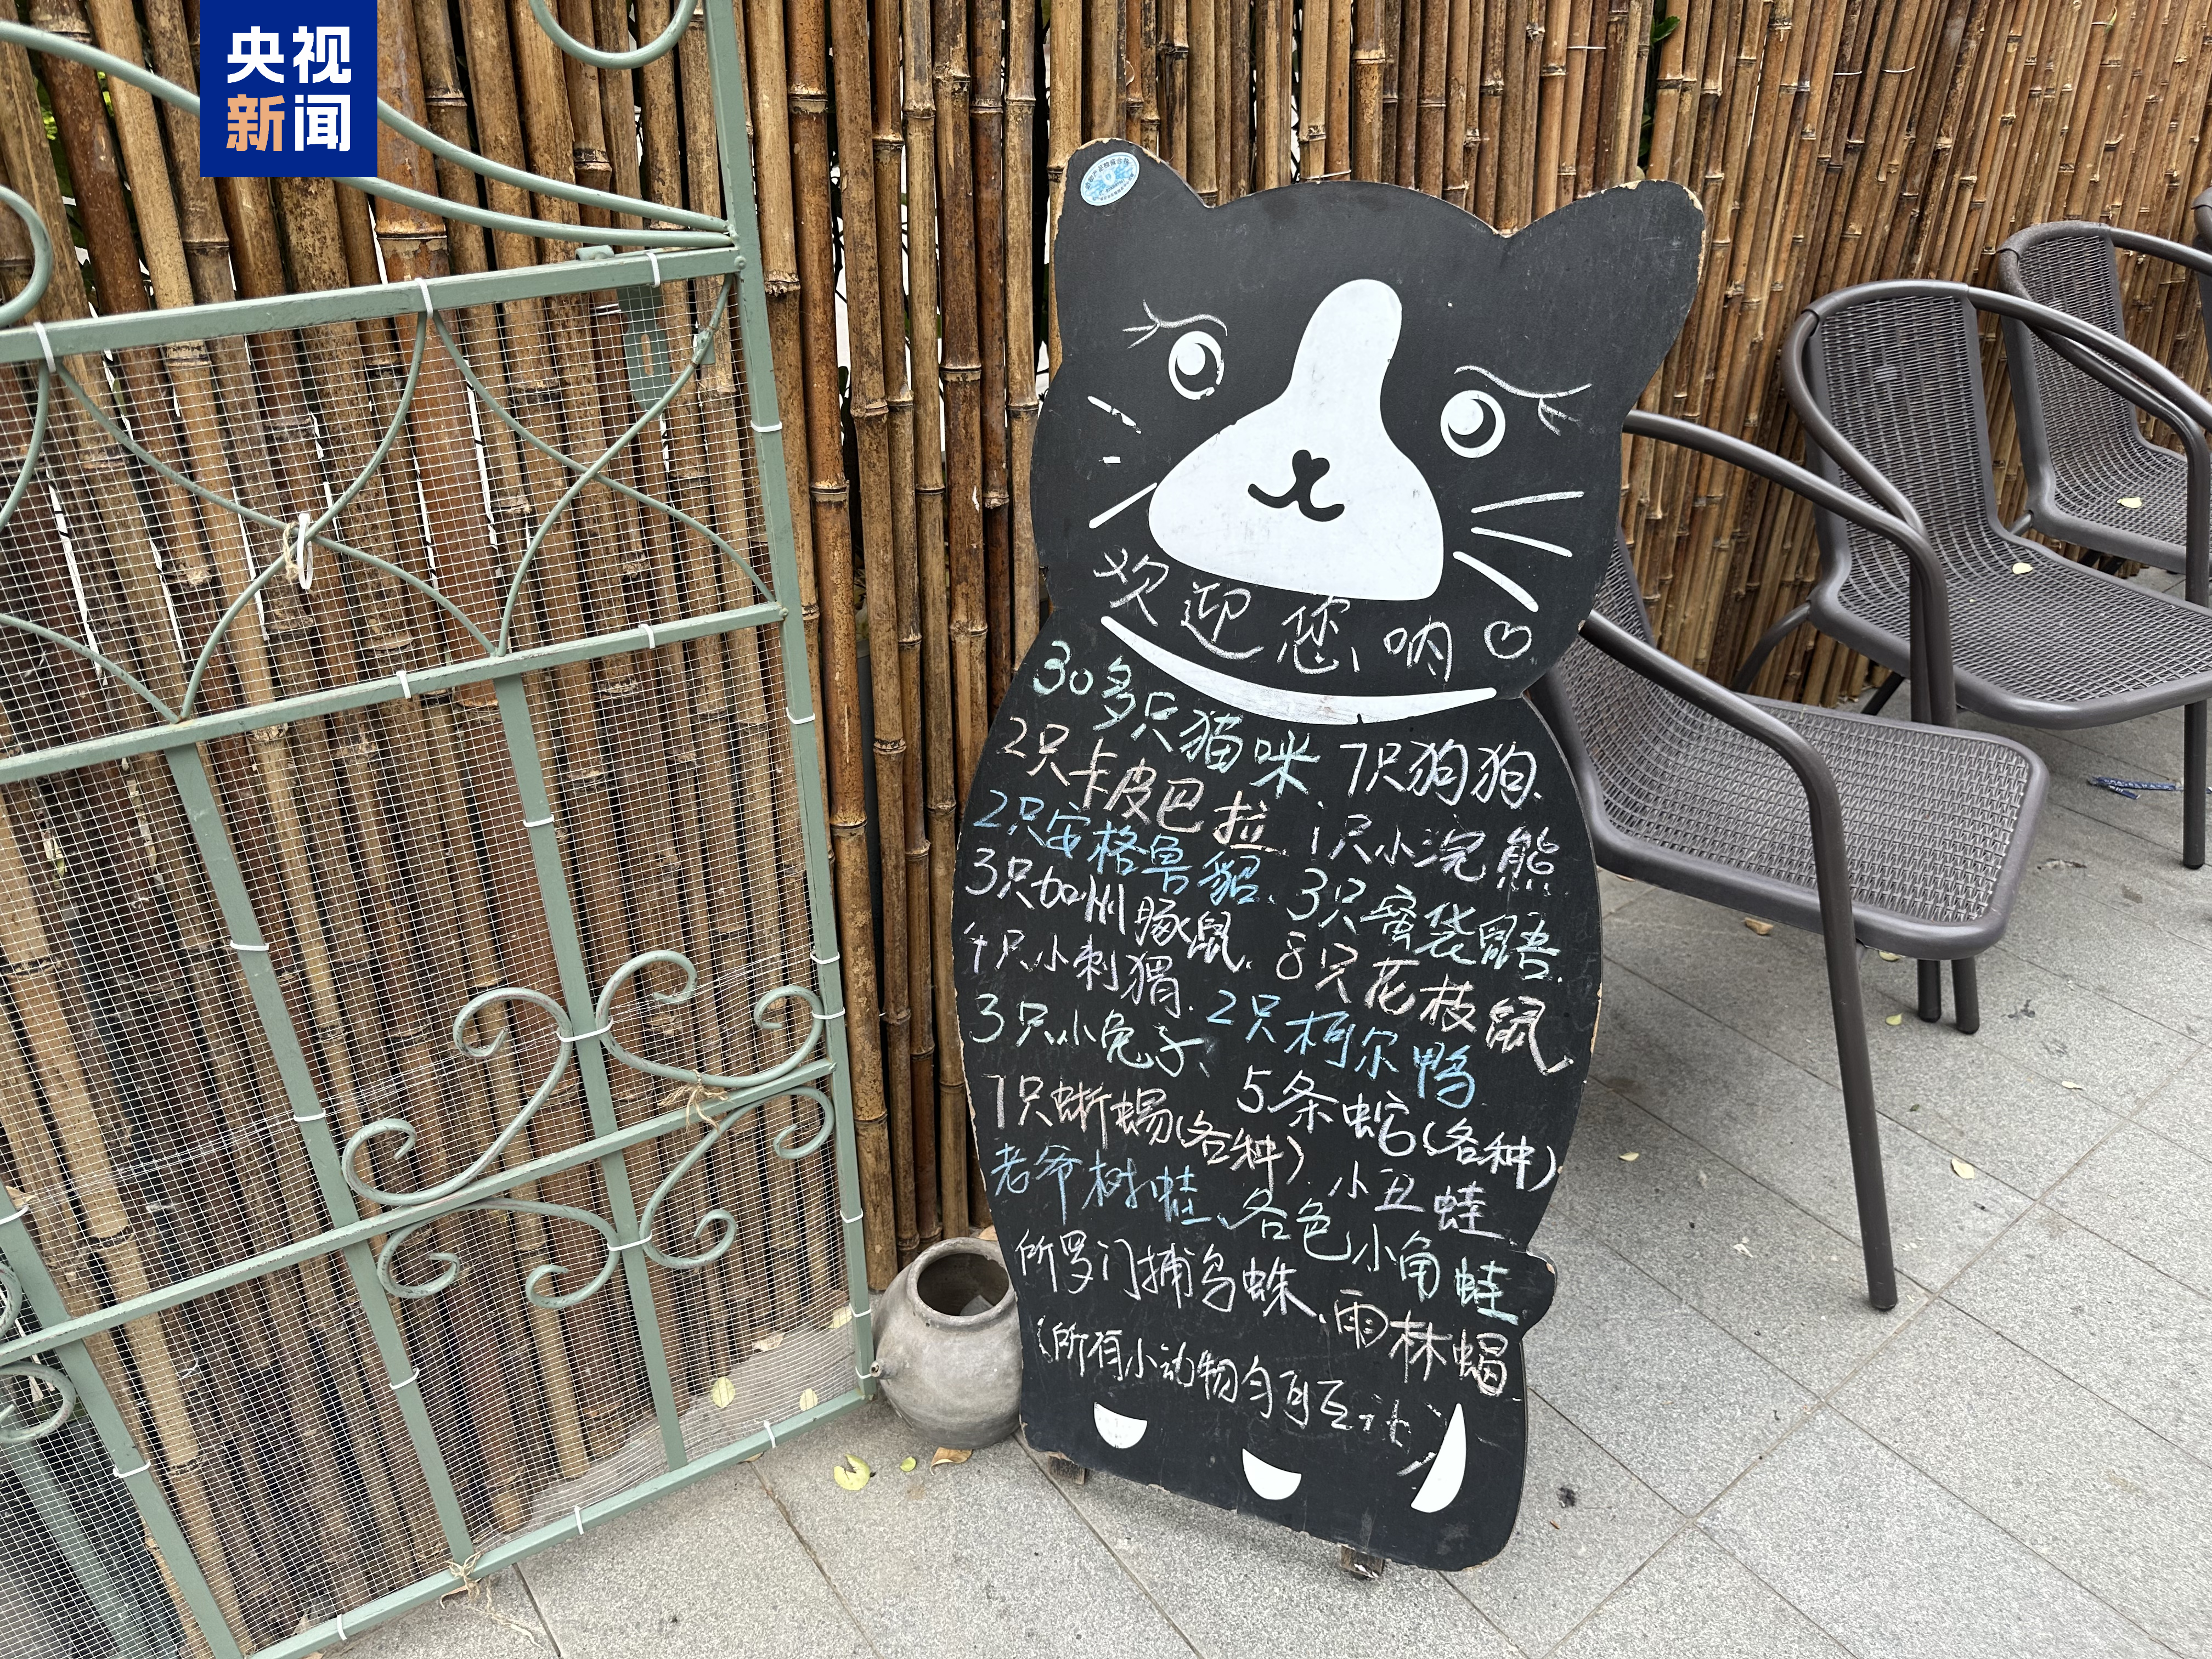 央视
新闻
欢迎您呐♡
30多只猫咪 7只狗狗、
2只卡皮巴拉、1只小浣熊
2只安格鲁貂、3只蜜袋鼯、
3只加州豚鼠、8只花枝鼠、
4只小刺猬、2只柯尔鸭
3只小兔子、5条蛇(各种)
7只蜥蜴(各种)、小丑蛙
老爷树蛙、各色小角蛙、
所罗门捕鸟蛛、雨林蝎
(所有小动物匀可互动